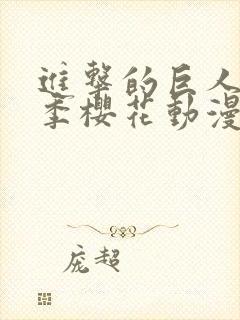 進擊的巨人
季櫻花動漫
庞超